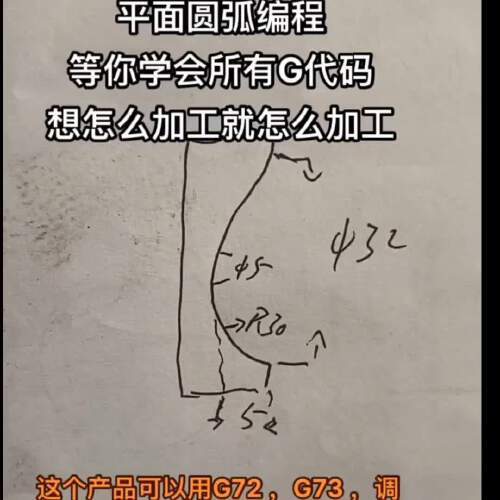 平面圆弧编程
等你学会所有G代码
想怎么加工就怎么加工
φ32
φ5
R30
5
这个产品可以用G72，G73，调